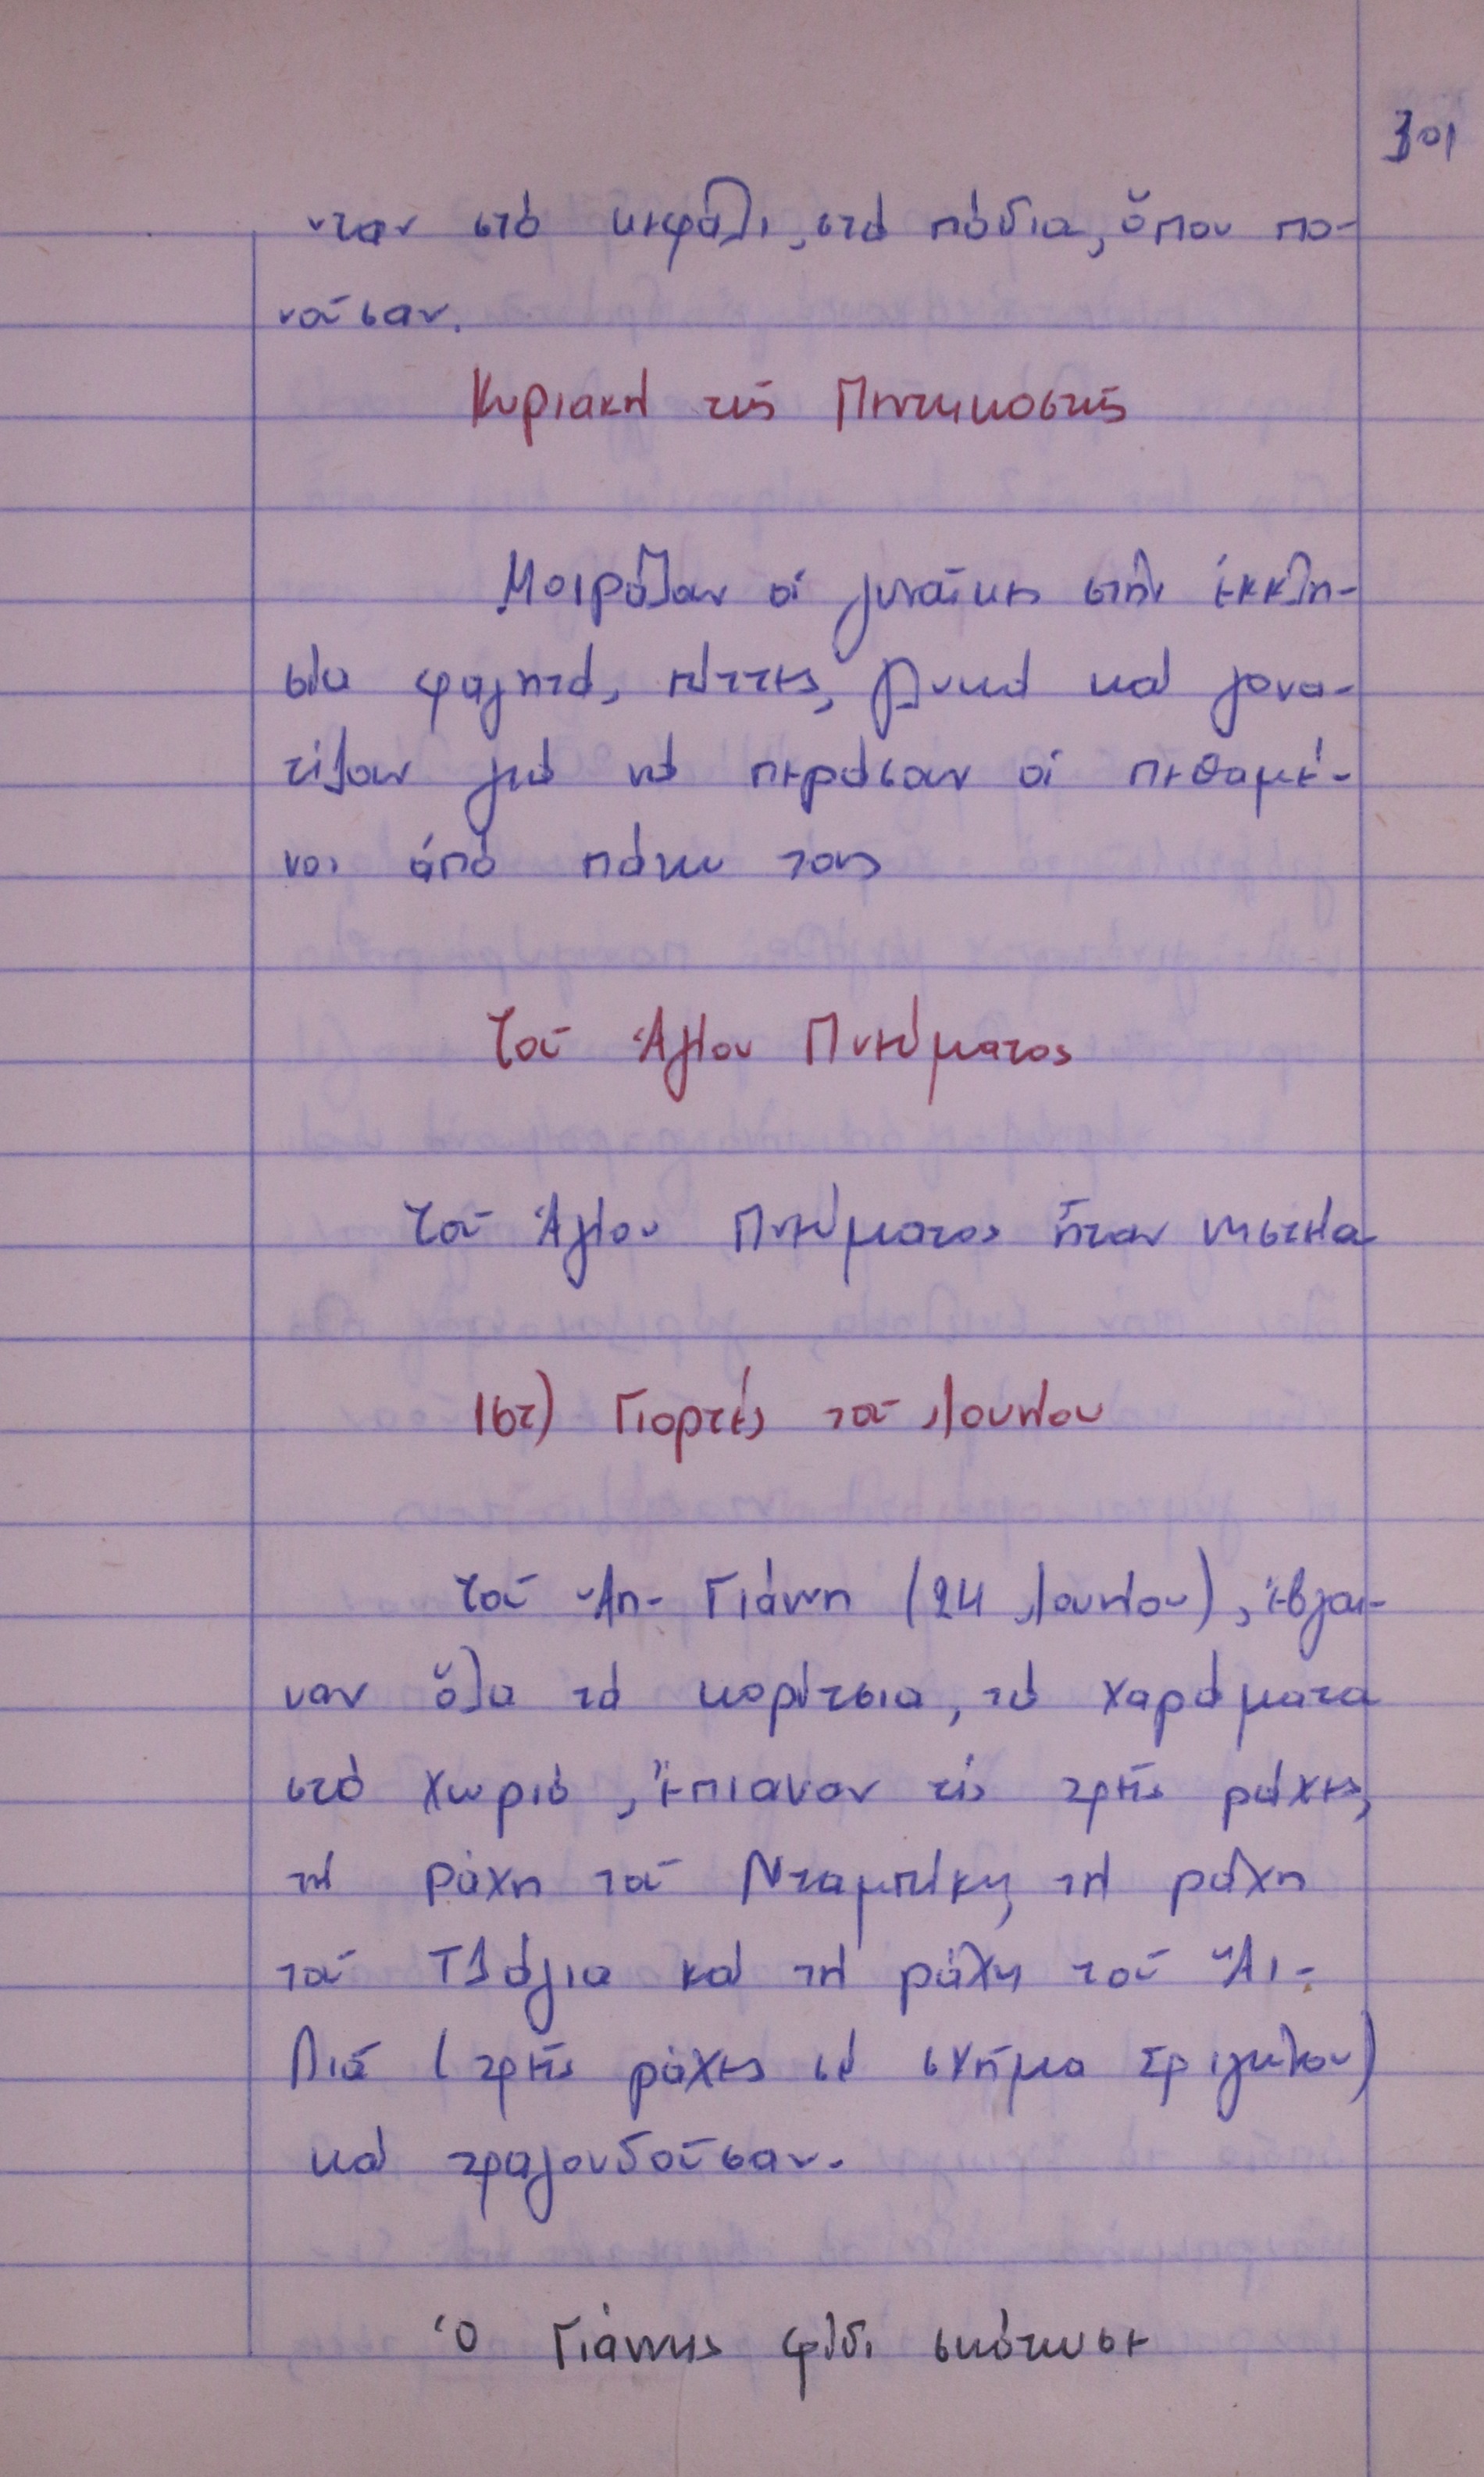 301
νταν στό κεφάλι, στά πόδια, ὅπου πο-
νοῦσαν.
Κυριακή τῆς Πεντηκοστῆς
Μοιράζαν οἱ γυναῖκες στήν ἐκκλη-
σία φαγητά, πίττες, γλυκά καί γονα-
τίζαν γιά νά περάσαν οἱ πεθαμέ-
νοι ἀπό πάνω τους
Τοῦ Ἁγίου Πνεύματος
Τοῦ Ἁγίου Πνεύματος ἦταν νηστεία
ιστ) Γιορτές τοῦ Ἰουνίου
Τοῦ Ἁη- Γιάννη (24 Ἰουνίου), ἔβγαι-
ναν ὅλα τά κορίτσια, τά χαράματα
στό χωριό, ἔπιαναν τίς τρεῖς ράχες,
τή ράχη τοῦ Νταμπίκη, τή ράχη
τοῦ Τζάγια καί τή ράχη τοῦ Ἅι-
Λιᾶ (τρεῖς ράχες σέ σχῆμα τριγώνου)
καί τραγουδοῦσαν.
Ὁ Γιάννης φίδι σκότωσε